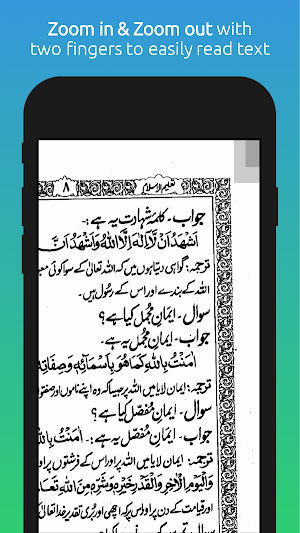 Zoom in & Zoom out with
two fingers to easily read text
تعلیم الاسلام
۸
جواب۔ کلمہ شہادت یہ ہے:۔
اَشْهَدُ اَنْ لَّا اِلٰهَ اِلَّا اللهُ وَاَشْهَدُ اَنَّ
ترجمہ: گواہی دیتا ہوں میں کہ اللہ تعالیٰ کے سوا کوئی
اللہ کے بندے اور اس کے رسول ہیں۔
سوال۔ ایمانِ مجمل کیا ہے؟
جواب۔ ایمانِ مجمل یہ ہے:۔
اٰمَنْتُ بِاللهِ كَمَا هُوَ بِاَسْمَائِهٖ وَصِفَاتِهٖ
ترجمہ: ایمان لایا میں اللہ پر جیسا کہ وہ اپنے ناموں اور
سوال۔ ایمانِ مفصل کیا ہے؟
جواب۔ ایمانِ مفصل یہ ہے:۔ اٰمَنْتُ بِاللهِ
وَالْيَوْمِ الْاٰخِرِ وَالْقَدْرِ خَيْرِهٖ وَشَرِّهٖ مِنَ اللهِ تَعَا
ترجمہ: ایمان لایا میں اللہ پر اور اس کے فرشتوں پر اور
اور قیامت کے دن پر اور اس پر کہ اچھی اور بُری تقدیر خدا تعالیٰ